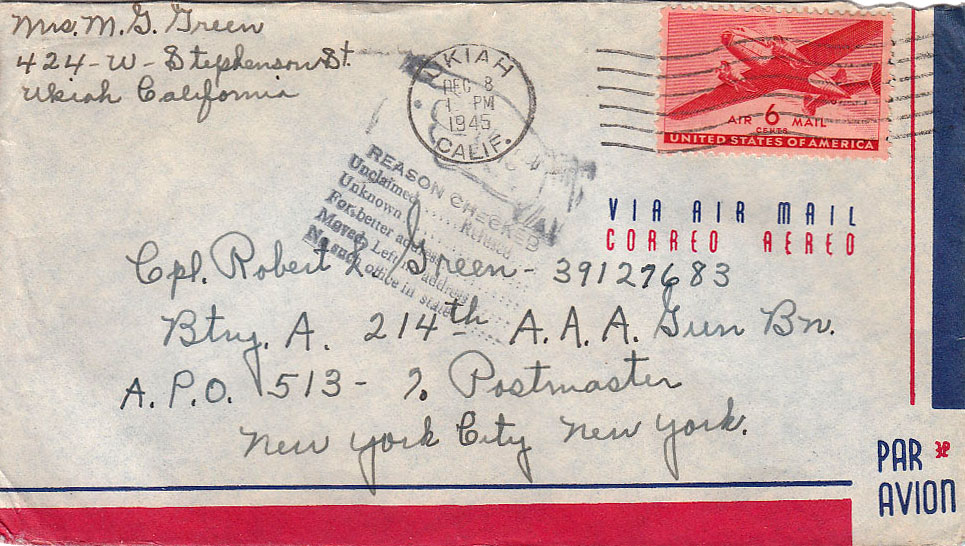 Mrs. M. G. Green
424-W-Stephenson St.
Ukiah California
UKIAH
DEC 8
1 PM
1945
CALIF.
AIR 6 MAIL
CENTS
UNITED STATES OF AMERICA
REASON CHECKED
Unclaimed ..... Refused .....
Unknown
For better address
Moved, Left no address
No such office in state
VIA AIR MAIL
CORREO AEREO
Cpl. Robert L. Green - 39127683
Btry. A. 214th A.A.A. Gun Bn.
A.P.O. 513 - % Postmaster
New York City New York.
PAR
AVION